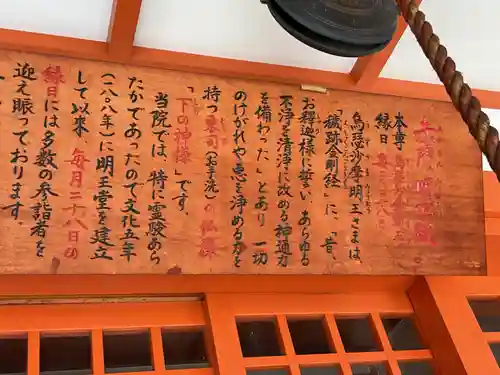 本尊 烏瑟沙摩明王
縁日 毎月二十八日
烏瑟沙摩明王さまは、
「穢跡金剛経」に「昔、
お釈迦様に誓い、あらゆる
不浄を清浄に改める神通力
を備わった」とあり 一切
のけがれや悪を浄める力を
持つ東司（お手洗）の仏様
「下の神様」です。
当院では、特に霊験あら
たかであったので文化五年
（一八〇八年）に明王堂を建立
して以来 毎月二十八日の
縁日には多数の参詣者を
迎え賑っております。